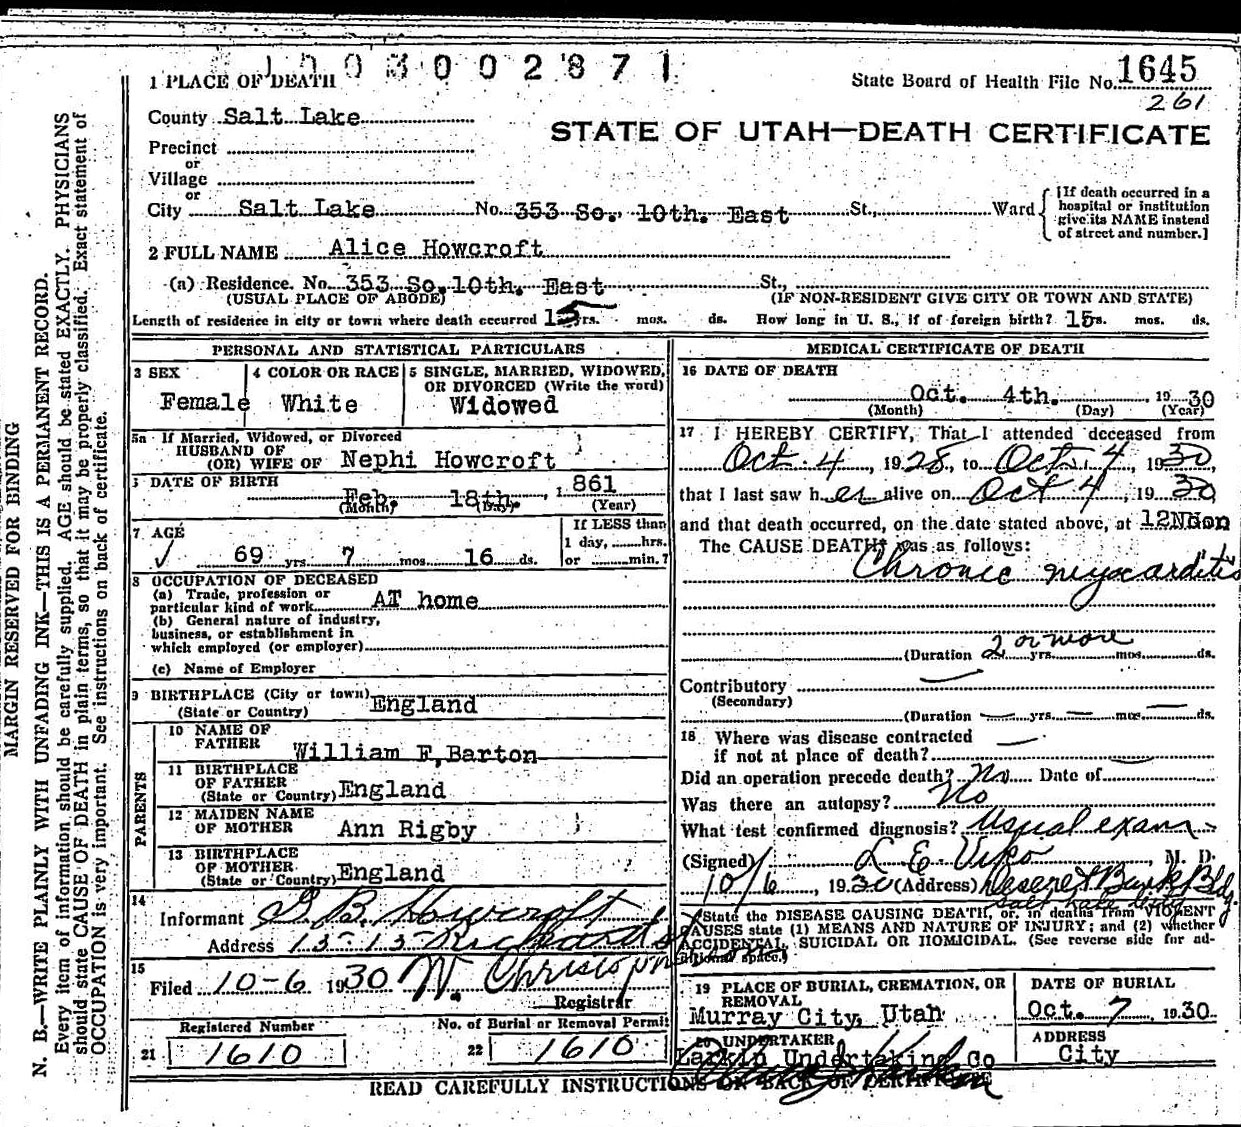 003002871
1 PLACE OF DEATH
State Board of Health File No. 1645
261
County Salt Lake
STATE OF UTAH—DEATH CERTIFICATE
Precinct
or
Village
or
City Salt Lake No. 353 So. 10th. East St., Ward
[If death occurred in a hospital or institution give its NAME instead of street and number.]
2 FULL NAME Alice Howcroft
(a) Residence. No. 353 So. 10th. East St.,
(USUAL PLACE OF ABODE) (IF NON-RESIDENT GIVE CITY OR TOWN AND STATE)
Length of residence in city or town where death occurred 15 yrs. mos. ds. How long in U. S., if of foreign birth? 15 rs. mos. ds.
PERSONAL AND STATISTICAL PARTICULARS
3 SEX
Female
4 COLOR OR RACE
White
5 SINGLE, MARRIED, WIDOWED, OR DIVORCED (Write the word)
Widowed
5a If Married, Widowed, or Divorced
HUSBAND OF
(OR) WIFE OF Nephi Howcroft
DATE OF BIRTH
Feb. 18th. 1861
(Month) (Day) (Year)
7 AGE
69 yrs 7 mos 16 ds.
If LESS than
1 day, hrs.
or min.?
8 OCCUPATION OF DECEASED
(a) Trade, profession or
particular kind of work AT home
(b) General nature of industry,
business, or establishment in
which employed (or employer)
(c) Name of Employer
9 BIRTHPLACE (City or town)
(State or Country) England
PARENTS
10 NAME OF
FATHER William F. Barton
11 BIRTHPLACE
OF FATHER
(State or Country) England
12 MAIDEN NAME
OF MOTHER Ann Rigby
13 BIRTHPLACE
OF MOTHER
(State or Country) England
14
Informant B. Howcroft
Address 13-13 Richards
15
Filed 10-6 1930 W. Christopherson
Registrar
Registered Number
21 1610
No. of Burial or Removal Permit
22 1610
MEDICAL CERTIFICATE OF DEATH
16 DATE OF DEATH
Oct. 4th. 1930
(Month) (Day) (Year)
17 I HEREBY CERTIFY, That I attended deceased from
Oct. 4, 1928, to Oct. 4, 1930,
that I last saw her alive on Oct 4, 1930
and that death occurred, on the date stated above, at 12Noon
The CAUSE DEATH was as follows:
Chronic myocarditis
(Duration 2 or more yrs. mos. ds.
Contributory
(Secondary)
(Duration yrs. mos. ds.
18 Where was disease contracted
if not at place of death?
Did an operation precede death? No Date of
Was there an autopsy? No
What test confirmed diagnosis? Usual exam
(Signed) L E Viko, M. D.
10/6, 1930 (Address) Deseret Bank Bldg.
Salt Lake City
State the DISEASE CAUSING DEATH, or, in deaths from VIOLENT
CAUSES state (1) MEANS AND NATURE OF INJURY; and (2) whether
ACCIDENTAL, SUICIDAL OR HOMICIDAL. (See reverse side for ad-
ditional space.)
19 PLACE OF BURIAL, CREMATION, OR REMOVAL
Murray City, Utah
DATE OF BURIAL
Oct. 7, 1930.
20 UNDERTAKER
Larkin Undertaking Co
ADDRESS
City
READ CAREFULLY INSTRUCTIONS ON BACK OF CERTIFICATE
MARGIN RESERVED FOR BINDING
N. B.—WRITE PLAINLY WITH UNFADING INK—THIS IS A PERMANENT RECORD.
Every item of information should be carefully supplied. AGE should be stated EXACTLY. PHYSICIANS
should state CAUSE OF DEATH in plain terms, so that it may be properly classified. Exact statement of
OCCUPATION is very important. See instructions on back of certificate.